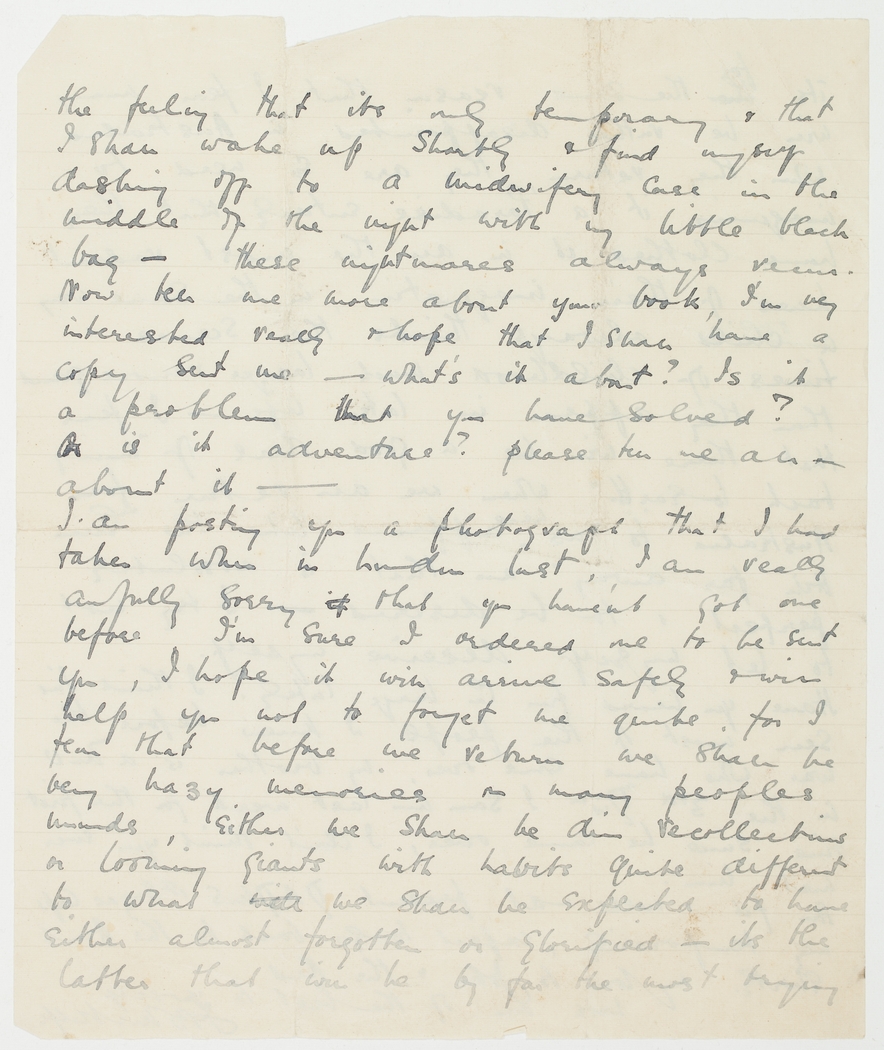 the feeling that its only temporary & that
I shall wake up shortly & find myself
dashing off to a midwifery case in the
middle of the night with my little black
bag — these nightmares always recur.
Now tell me more about your book, I'm very
interested really & hope that I shall have a
copy sent me — what's it about? Is it
a problem that you have solved?
Or is it adventure? please tell me all —
about it —
I am posting you a photograph that I had
taken when in London last, I am really
awfully sorry it that you have'nt got one
before I'm sure I ordered one to be sent
you, I hope it will arrive safely & will
help you not to forget me quite, for I
fear that before we return we shall be
very hazy memories in many peoples
minds, Either we shall be dim recollections
or looming giants with habits quite different
to what we shall be expected to have
Either almost forgotten or Glorified — its the
latter that will be by far the most trying